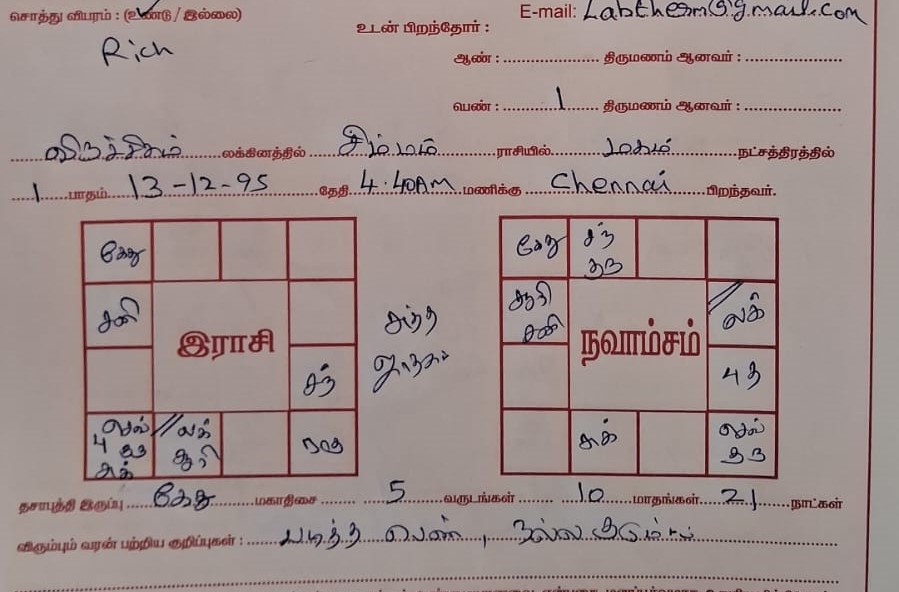 சொத்து விபரம் : (உண்டு / இல்லை)
E-mail: Labtherm@gmail.com
Rich
உடன் பிறந்தோர் :
ஆண் : .................... திருமணம் ஆனவர் : ....................
பெண் : 1 திருமணம் ஆனவர் : ....................
விருச்சிகம் லக்கினத்தில் சிம்மம் ராசியில் மகம் நட்சத்திரத்தில்
1 பாதம் 13-12-95 தேதி 4.40AM மணிக்கு Chennai பிறந்தவர்.
கேது
சனி
இராசி
சுத்த ஜாதகம்
சந்
செல் புத சுக்
லக் சூரி
ராகு
கேது
சந்
சூரி சனி
நவாம்சம்
லக்
புத
சுக்
செல்
தசாபுத்தி இருப்பு கேது மகாதிசை 5 வருடங்கள் 10 மாதங்கள் 21 நாட்கள்
விரும்பும் வரன் பற்றிய குறிப்புகள் : படித்த பெண், நல்ல குடும்பம்